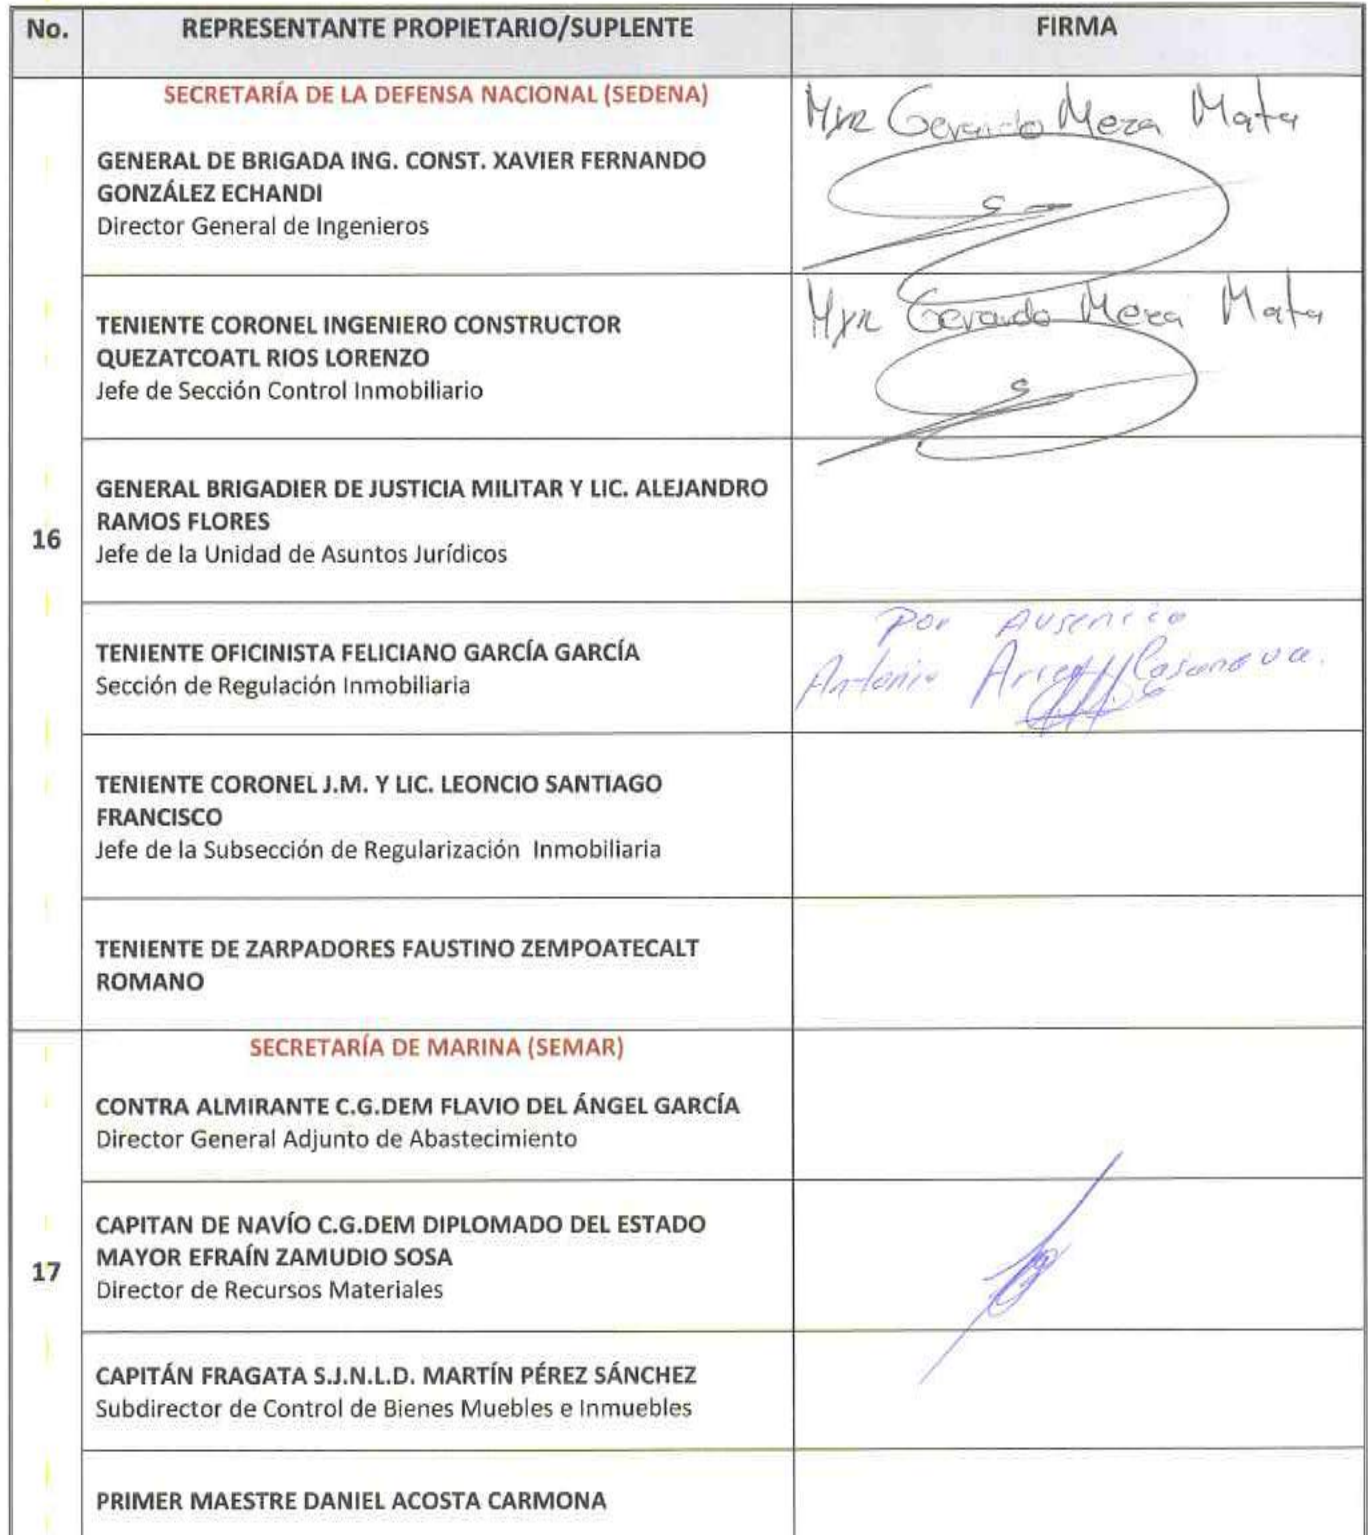 No. REPRESENTANTE PROPIETARIO/SUPLENTE FIRMA
SECRETARÍA DE LA DEFENSA NACIONAL (SEDENA)
GENERAL DE BRIGADA ING. CONST. XAVIER FERNANDO
GONZÁLEZ ECHANDI
Director General de Ingenieros
Gerardo Meza Mata
TENIENTE CORONEL INGENIERO CONSTRUCTOR
QUEZATCOATL RIOS LORENZO
Jefe de Sección Control Inmobiliario
Gerardo Meza Mata
16
GENERAL BRIGADIER DE JUSTICIA MILITAR Y LIC. ALEJANDRO
RAMOS FLORES
Jefe de la Unidad de Asuntos Jurídicos
TENIENTE OFICINISTA FELICIANO GARCÍA GARCÍA
Sección de Regulación Inmobiliaria
Por Ausencia
Antonio Casanova.
TENIENTE CORONEL J.M. Y LIC. LEONCIO SANTIAGO
FRANCISCO
Jefe de la Subsección de Regularización Inmobiliaria
TENIENTE DE ZARPADORES FAUSTINO ZEMPOATECALT
ROMANO
17
SECRETARÍA DE MARINA (SEMAR)
CONTRA ALMIRANTE C.G.DEM FLAVIO DEL ÁNGEL GARCÍA
Director General Adjunto de Abastecimiento
CAPITAN DE NAVÍO C.G.DEM DIPLOMADO DEL ESTADO
MAYOR EFRAÍN ZAMUDIO SOSA
Director de Recursos Materiales
CAPITÁN FRAGATA S.J.N.L.D. MARTÍN PÉREZ SÁNCHEZ
Subdirector de Control de Bienes Muebles e Inmuebles
PRIMER MAESTRE DANIEL ACOSTA CARMONA